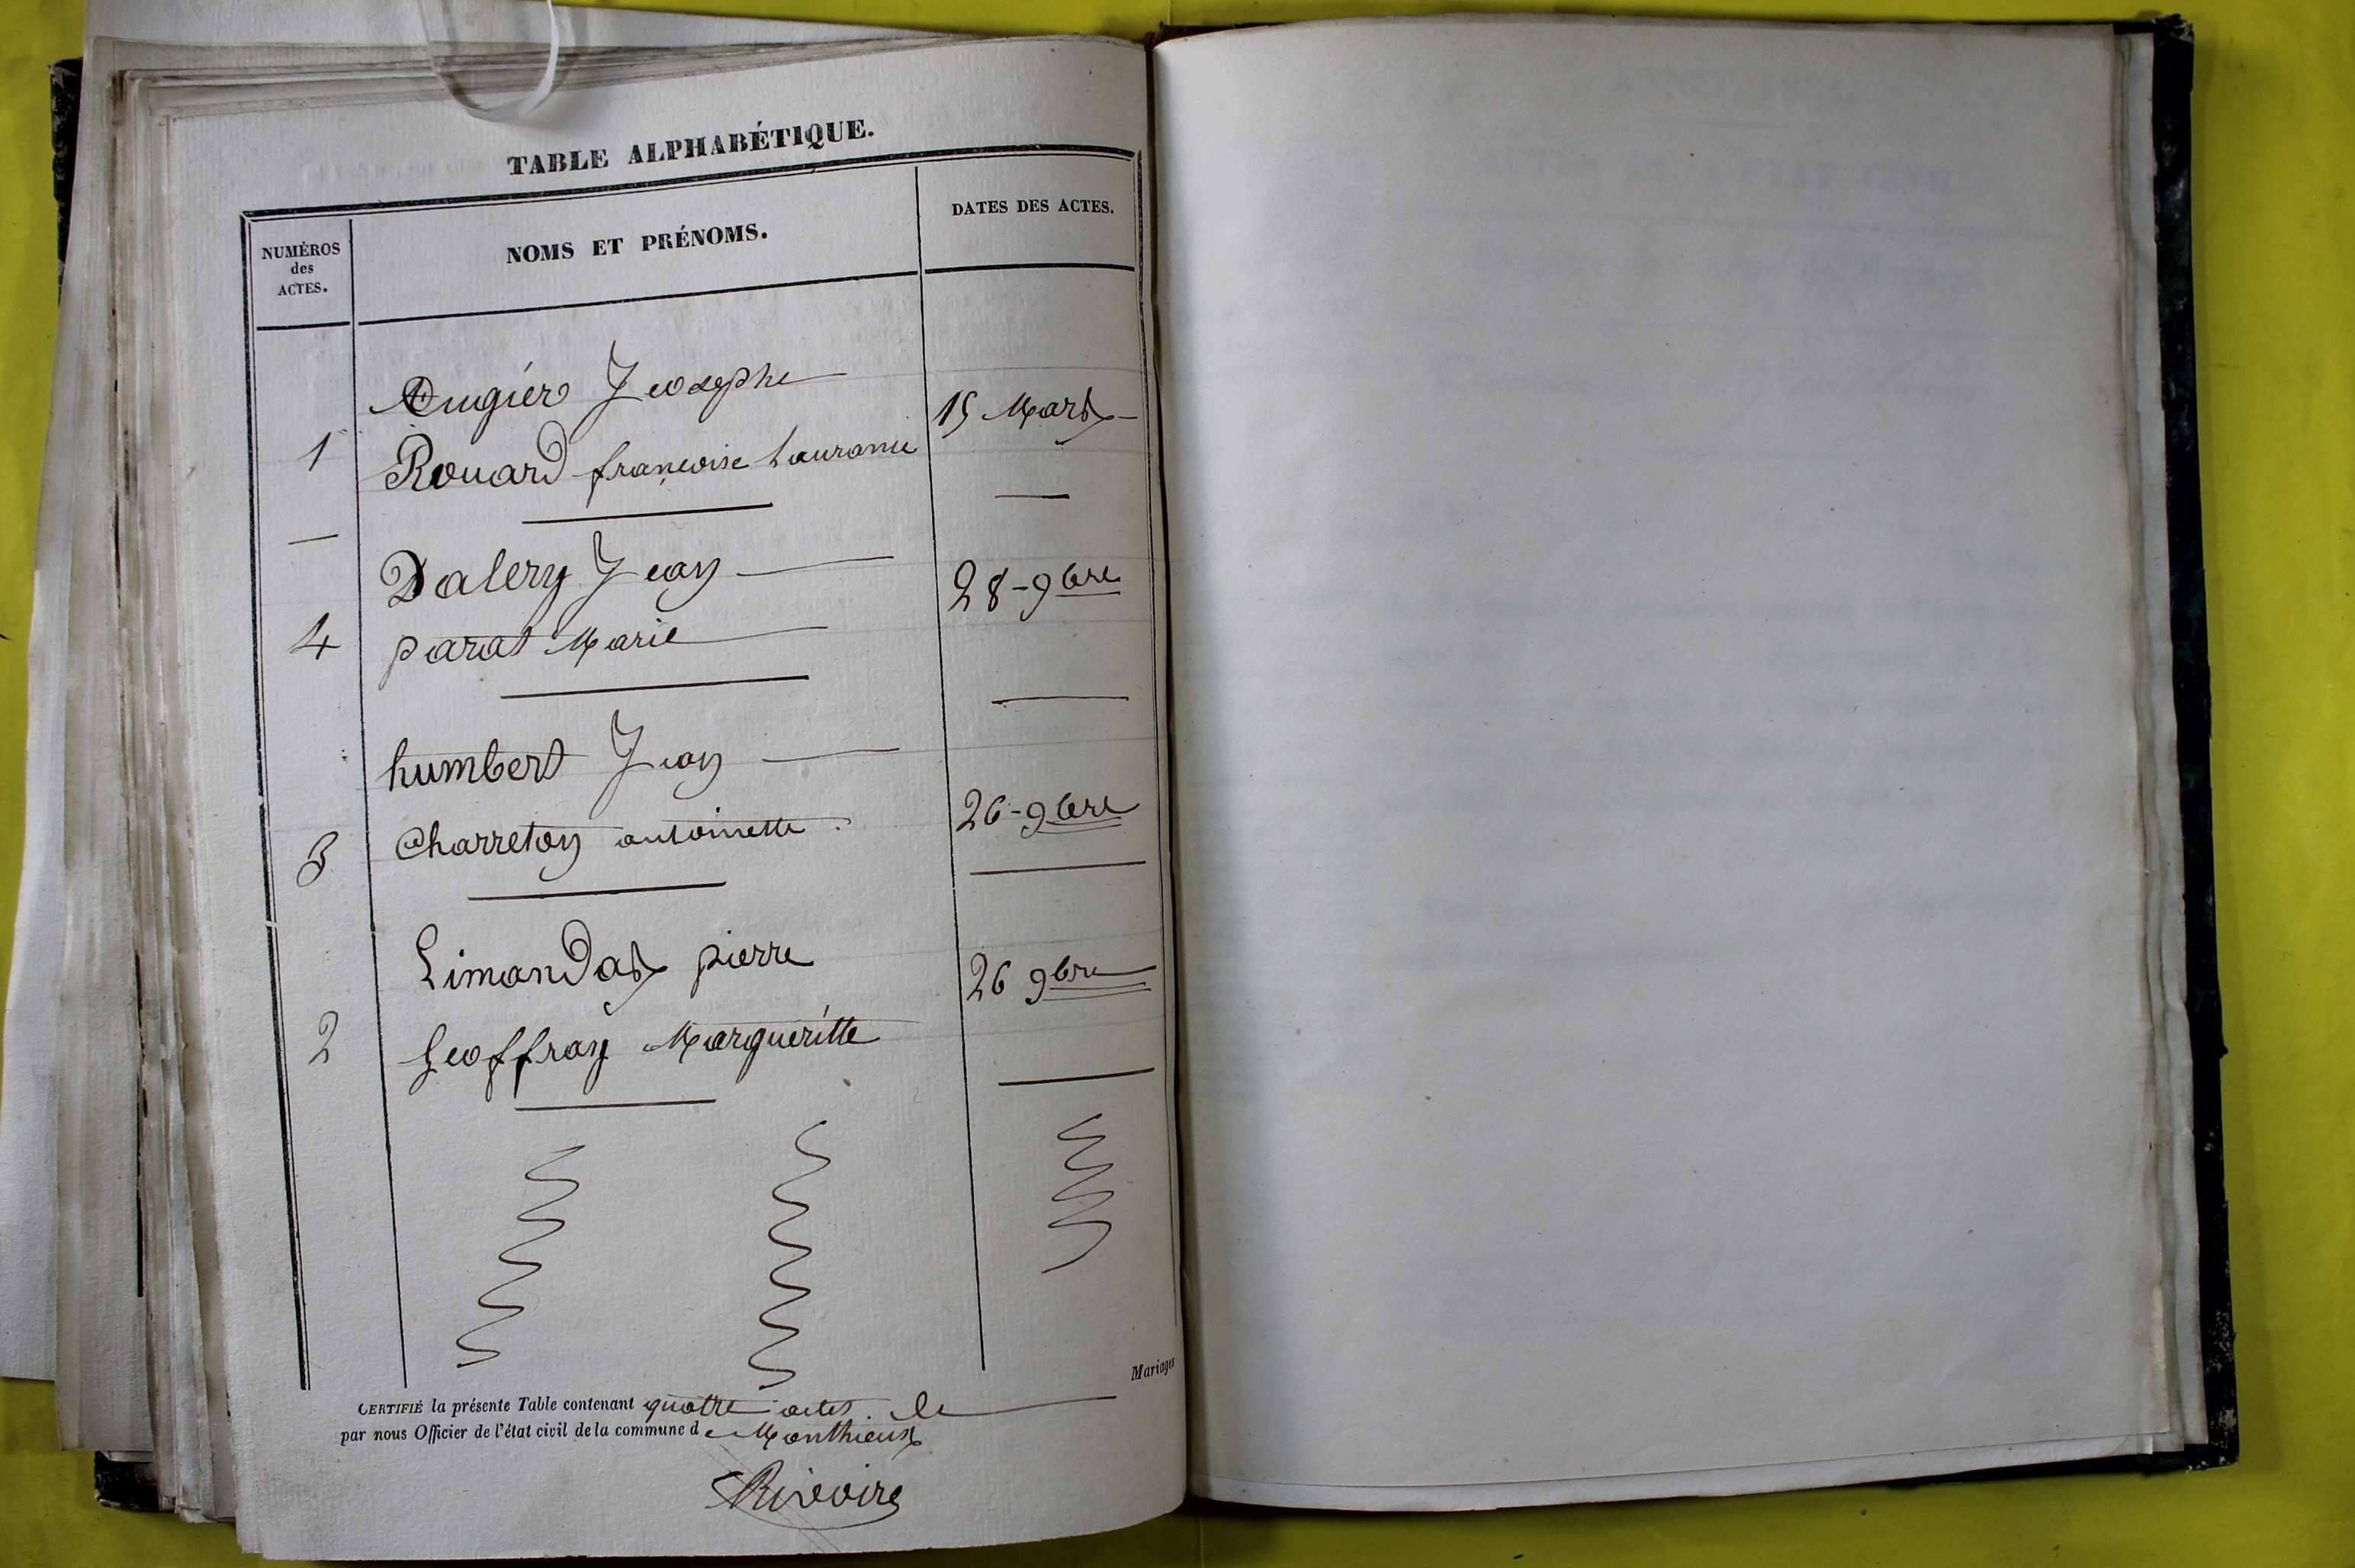 TABLE ALPHABÉTIQUE.
NUMÉROS
des
ACTES.
NOMS ET PRÉNOMS.
DATES DES ACTES.
Augier Jeosephe
15 Mars
1 Rouard francoise
Dalery Jean
28-9bre
4 parat Marie
humbert Jean
26-9bre
3 Charreton antoinette
Limandas pierre
26 9bre
2 Geoffray Margueritte
Mariages
CERTIFIÉ la présente Table contenant quattre actes. le
par nous Officier de l'état civil de la commune de Monthieux
Rivoire